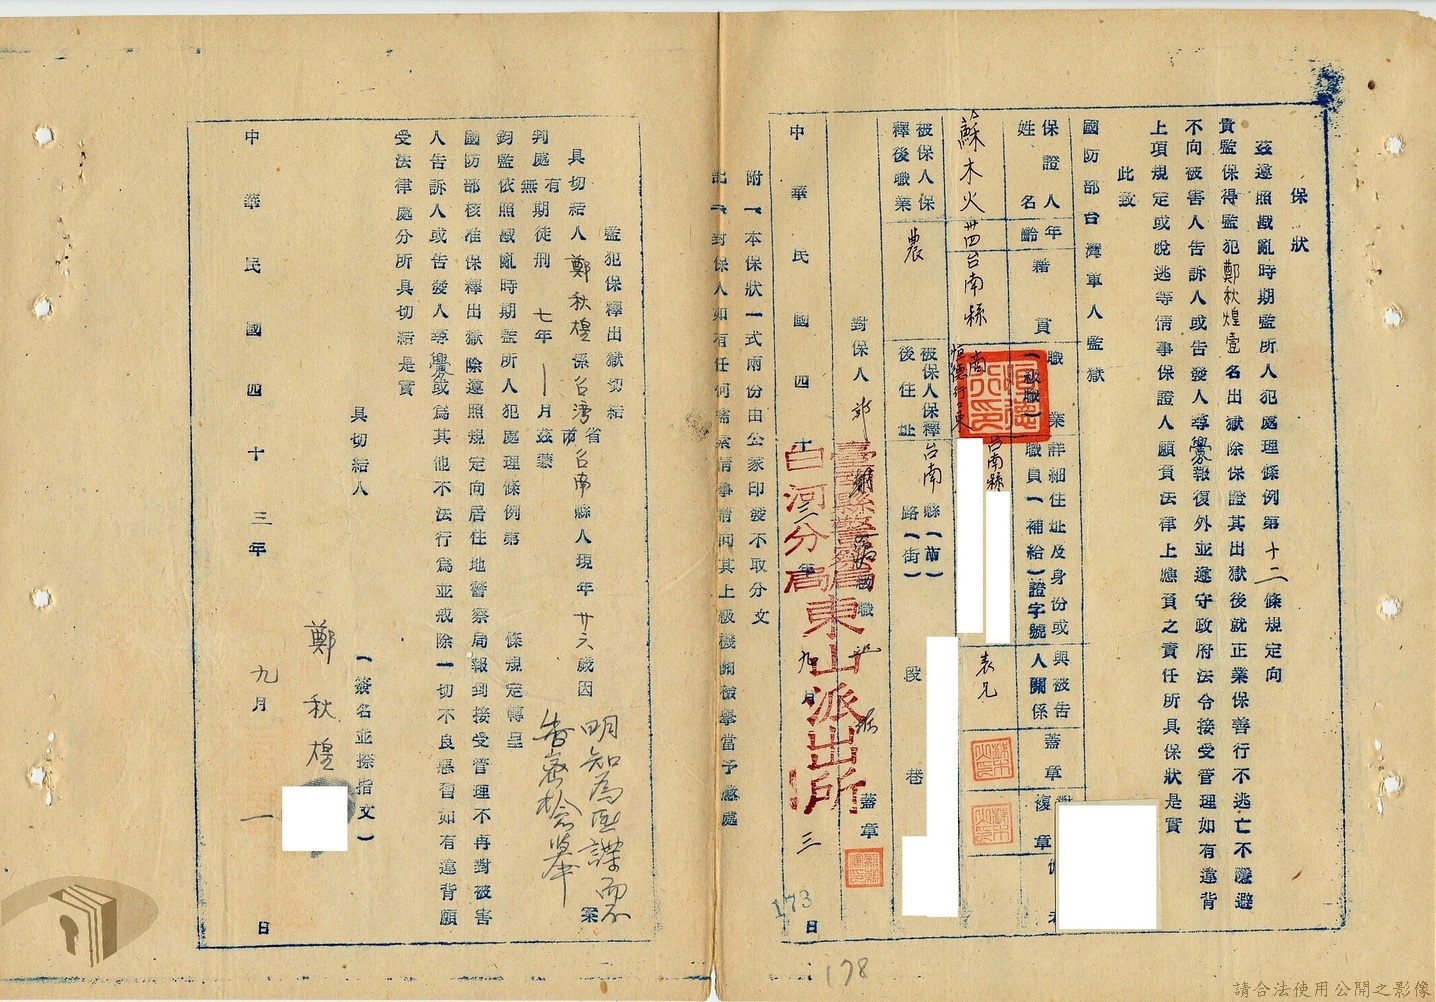 保狀
茲遵照戡亂時期監所人犯處理條例第十二條規定向
貴監保得監犯鄭秋煌壹名出獄除保證其出獄後就正業保善行不逃亡不隱避
不向被害人告訴人或告發人尋釁報復外並遵守政府法令接受管理如有違背
上項規定或脫逃等情事保證人願負法律上應負之責任所具保狀是實
此致
國防部台灣軍人監獄
保證人姓名
年齡
籍貫
職業(級職)
詳細住址及身份或職員(補給)證字號
與被告人關係
蓋章
復章
蘇木火
卅四
台南縣
商
恒德行
台南縣
表兄
被保人保釋後職業
農
被保人保釋後住址
台南縣(市)
路(街)
段
巷
對保人
蓋章
臺南縣警察局
白河分局東山派出所
中華民國四十三年九月三日
附一、本保狀一式兩份由公家印發不取分文
記一、對保人如有任何需索情事請向其上級機關檢舉當予懲處
173
178
監犯保釋出獄切結
具切結人鄭秋楻係台灣省台南縣人現年廿六歲因明知為匪諜而不告密檢舉案
判處有無期徒刑七年一月茲蒙
鈞監依照戡亂時期監所人犯處理條例第 條規定轉呈
國防部核准保釋出獄除遵照規定向居住地警察局報到接受管理不再對被害
人告訴人或告發人尋釁或為其他不法行為並戒除一切不良惡習如有違背願
受法律處分所具切結是實
具切結人
(簽名並捺指文)
鄭秋楻
中華民國四十三年九月一日
請合法使用公開之影像